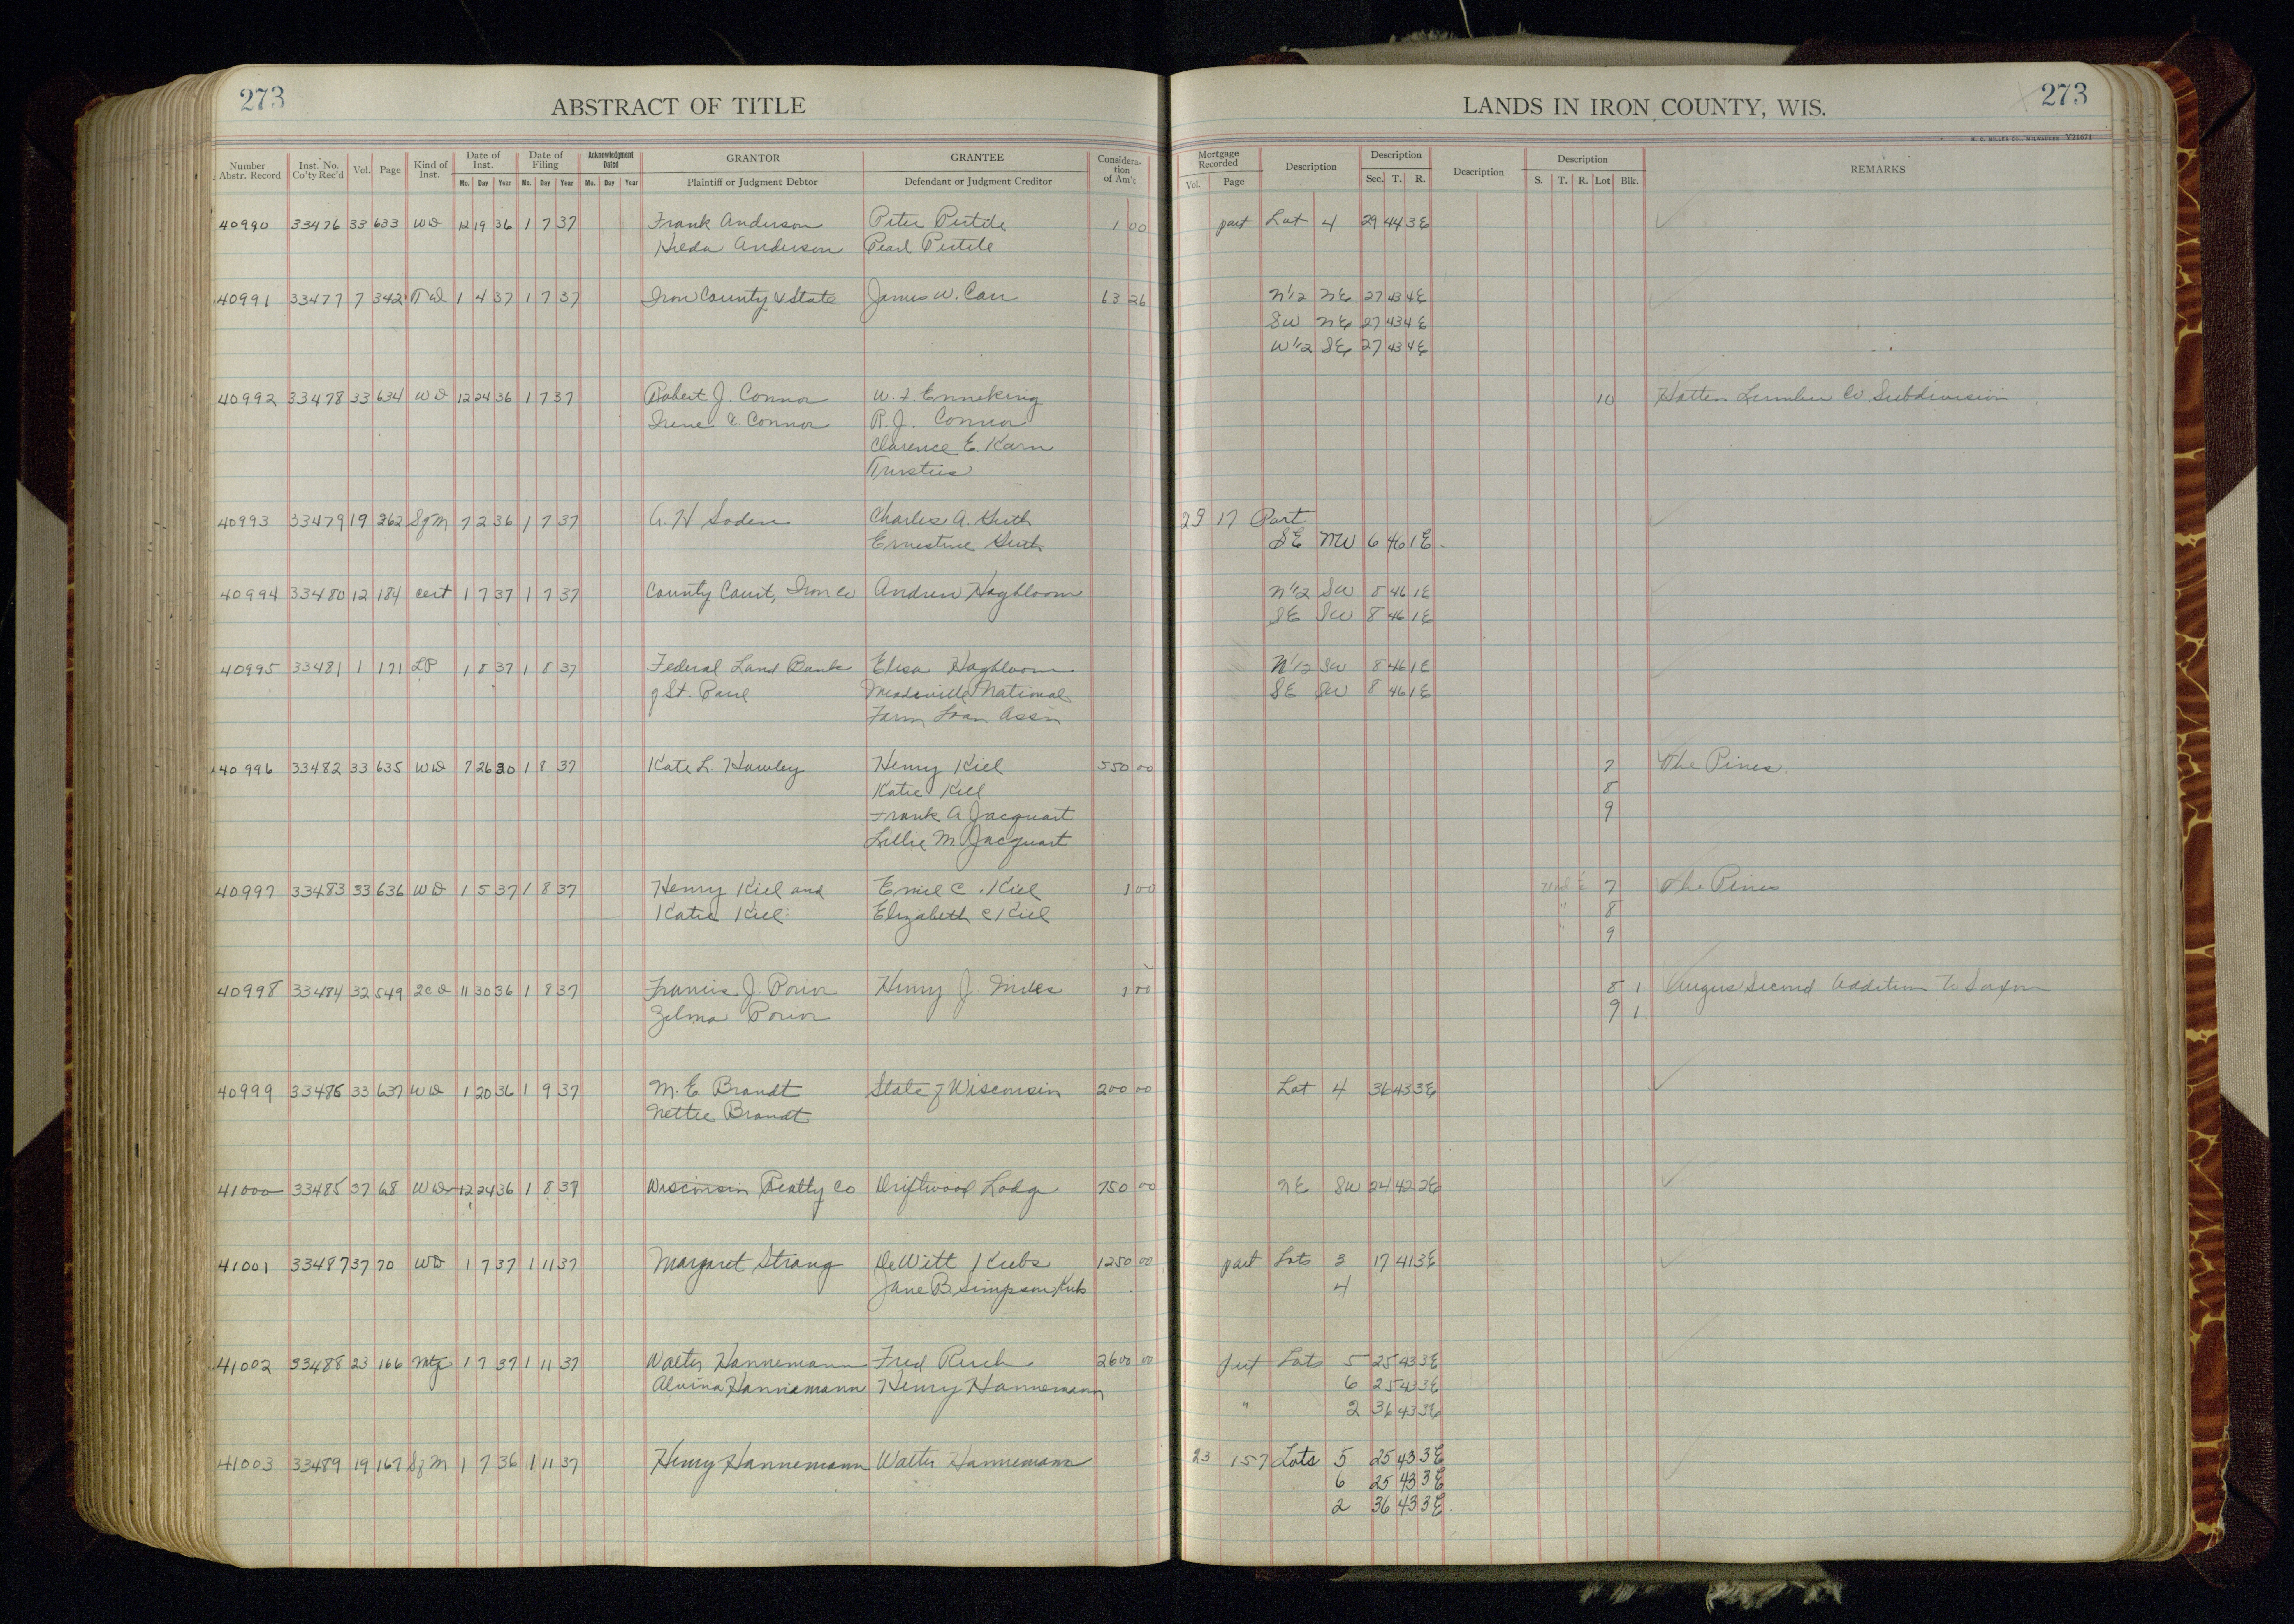 273 ABSTRACT OF TITLE
LANDS IN IRON COUNTY, WIS. 273
Number Abstr. Record Inst. No. Co'ty Rec'd Vol. Page Kind of Inst. Date of Inst. Date of Filing Acknowledgment Dated GRANTOR GRANTEE Considera-tion of Am't
Mo. Day Year Mo. Day Year Mo. Day Year Plaintiff or Judgment Debtor Defendant or Judgment Creditor
Mortgage Recorded Description Description Description Description REMARKS
Vol. Page Sec. T. R. S. T. R. Lot Blk.
40990 33476 33 633 WD 12 19 36 1 7 37 Frank Anderson Peter Pertile 1 00 part Lot 4 29 44 3E
Hilda Anderson Pearl Pertile
40991 33477 7 342 TD 1 4 37 1 7 37 Iron County & State James W. Carr 63 26 N1/2 NE 27 43 4E
SW NE 27 43 4E
W1/2 SE 27 43 4E
40992 33478 33 634 WD 12 24 36 1 7 37 Robert J. Connor W. F. Enneking 10 Hatten Lumber Co Subdivision
Irene E. Connor R. J. Connor
Clarence E. Karn
Trustees
40993 33479 19 262 SfM 7 2 36 1 7 37 A. H Soden Charles A. 29 17 Part
Ernestine SE NW 6 46 1E
40994 33480 12 184 cert 1 7 37 1 7 37 County Court, Iron Co Andrew Hagbloom N1/2 SW 8 46 1E
SE SW 8 46 1E
40995 33481 1 171 LP 1 8 37 1 8 37 Federal Land Bank Elisa Hagbloom N1/2 SW 8 46 1E
of St. Paul National SE SW 8 46 1E
Farm Loan Assn
40996 33482 33 635 WD 7 26 30 1 8 37 Kate L. Hawley Henry Kiel 550 00 7 The Pines
Katie Kiel 8
Frank A Jacquart 9
Lillie M Jacquart
40997 33483 33 636 WD 1 5 37 1 8 37 Henry Kiel and Emil C. Kiel 1 00 7 The Pines
Katie Kiel Elizabeth C Kiel " 8
" 9
40998 33484 32 549 2cD 11 30 36 1 8 37 Francis J. Porior Henry J. Innes 1 00 8 1 Angus Second Addition to Saxon
Zelma Porior 9 1
40999 33486 33 637 WD 1 20 36 1 9 37 M. E Brandt State of Wisconsin 200 00 Lot 4 36 43 3E
Nettie Brandt
41000 33485 37 68 WD 12 24 36 1 8 39 Wisconsin Realty Co Driftwood Lodge 750 00 NE SW 24 42 2E
41001 33487 37 70 WD 1 7 37 1 11 37 Margaret Strong DeWitt Kubs 1250 00 part Lots 3 17 41 3E
Jane B Simpson Kubs 4
41002 33488 23 166 Mtg 1 7 37 1 11 37 Walter Hannemann Fred Rusch 2600 00 part Lots 5 25 43 3E
Alvina Hannemann Henry Hannemann 6 25 43 3E
" 2 36 43 3E
41003 33489 19 167 SfM 1 7 36 1 11 37 Henry Hannemann Walter Hannemann 23 157 Lots 5 25 43 3E
6 25 43 3E
2 36 43 3E